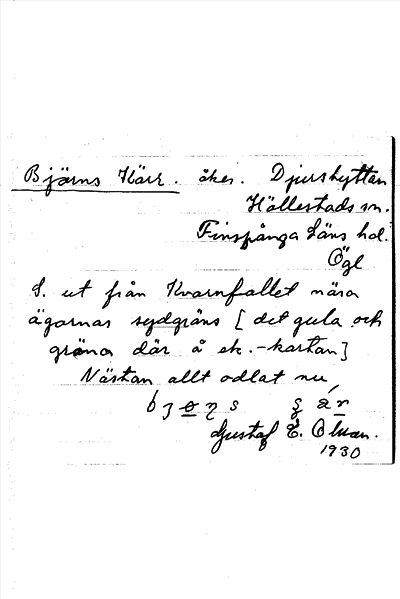 Björns Kärr. åker. Djurshyttan
Hällestads sn.
Finspånga Läns hd.
Ögl
S. ut från Kvarnfallet nära
ägornas sydgräns [det gula och
gröna där å ek.-kartan]
Nästan allt odlat nu
Gustaf E. Olman.
1930